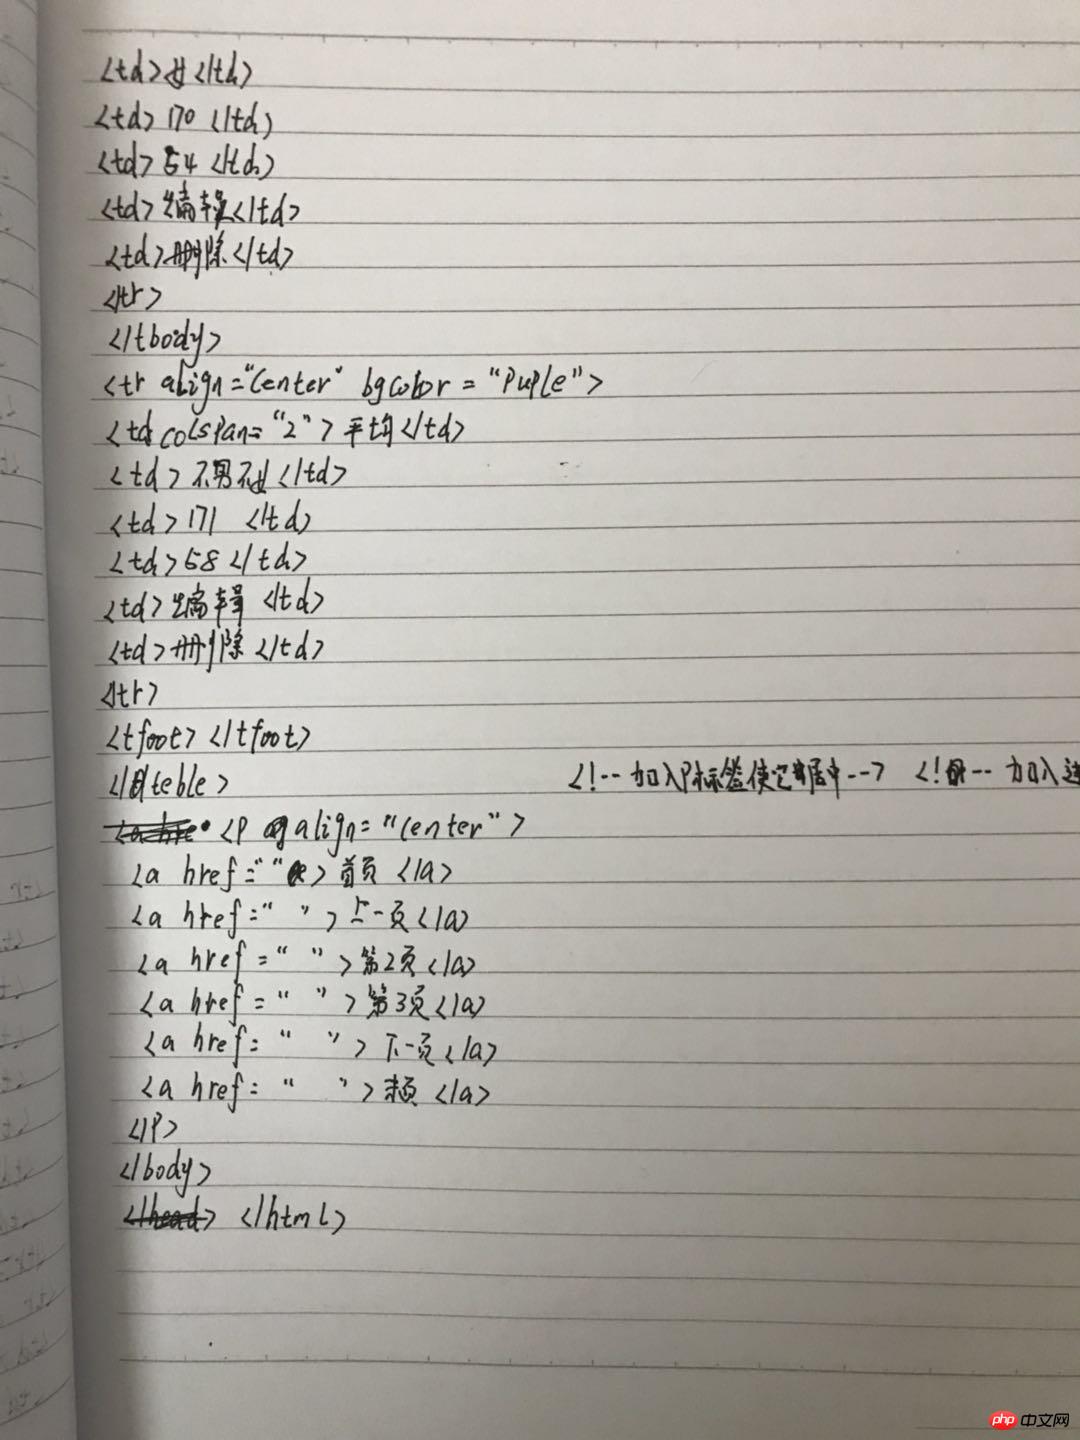 <td>女</td>
<td>170</td>
<td>54</td>
<td>编辑</td>
<td>删除</td>
</tr>
</tbody>
<tr align="center" bgcolor="puple">
<td colspan="2">平均</td>
<td>不男不女</td>
<td>171</td>
<td>58</td>
<td>编辑</td>
<td>删除</td>
</tr>
<tfoot></tfoot>
</teble> <!-- 加入P标签使它居中 --> <!-- 加入
<P align="center">
<a href="">首页</a>
<a href=" ">上一页</a>
<a href=" ">第2页</a>
<a href=" ">第3页</a>
<a href=" ">下一页</a>
<a href=" ">末页</a>
</P>
</body>
</html>
php 中文网